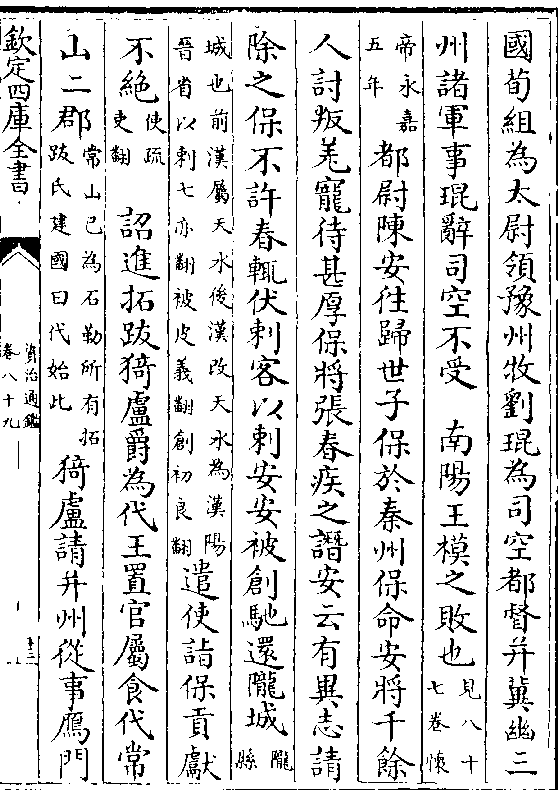 國荀組為太尉領豫州牧劉琨為司空都督并冀幽三
州諸軍事琨辭司空不受　南陽王模之敗也見八十七卷懷
帝永嘉五年都尉陳安往歸世子保於秦州保命安將千餘
人討叛羌寵待甚厚保將張春疾之譖安云有異志請
除之保不許春輒伏刺客以刺安安被創馳還隴城隴縣
城也前漢屬天水後漢改天水為漢陽晉省以刺七亦翻被皮義翻創初良翻遣使詣保貢獻
不絶使疏吏翻　詔進拓跋猗盧爵為代王置官屬食代常
山二郡常山已為石勒所有拓跋氏建國曰代始此猗盧請并州從事鴈門
欽定四庫全書
資治通鑑
卷八十九
十三